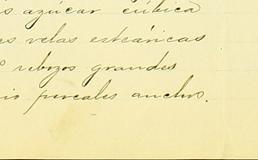 azúcar cúbica
velas esteáricas
rebozos grandes
percales anchos.